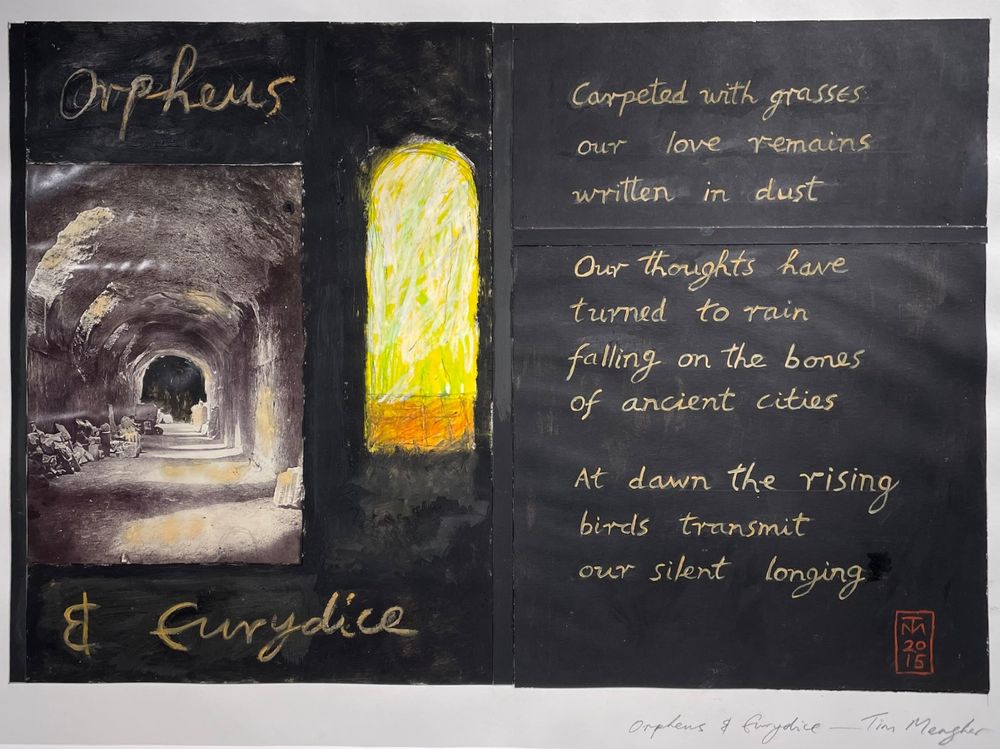 Orpheus
& Eurydice
Carpeted with grasses
our love remains
written in dust
Our thoughts have
turned to rain
falling on the bones
of ancient cities
At dawn the rising
birds transmit
our silent longing
TM
20
15
Orpheus & Eurydice — Tim Meagher